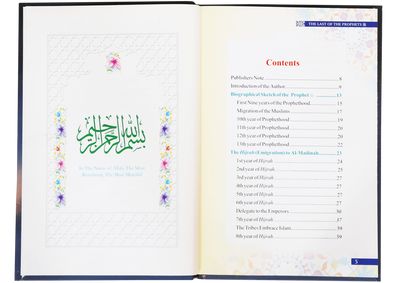 بسم الله الرحمن الرحيم
In The Name of Allah The Most
Beneficent, The Most Merciful
THE LAST OF THE PROPHETS
Contents
Publishers Note 8
Introduction of the Author 9
Biographical Sketch of the Prophet 13
First Nine years of the Prophethood 15
Migration of the Muslims 17
10th year of Prophethood 19
11th year of Prophethood 20
12th year of Prophethood 22
13th year of Prophethood 22
The Hijrah (Emigration) to Al-Madinah 23
1st year of Hijrah 24
2nd year of Hijrah 25
3rd year of Hijrah 27
4th year of Hijrah 27
5th year of Hijrah 27
6th year of Hijrah 27
Delegate to the Emperors 36
7th year of Hijrah 37
The Tribes Embrace Islam 39
8th year of Hijrah 39
5